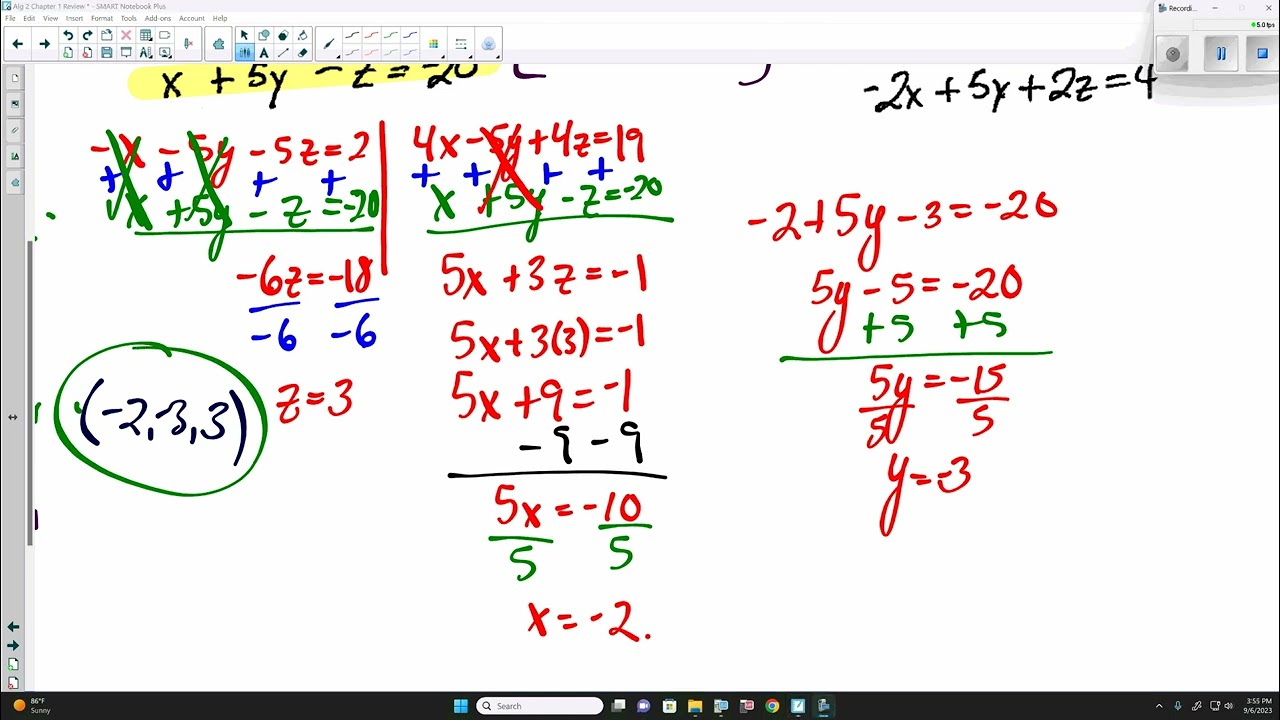 Alg 2 Chapter 1 Review * - SMART Notebook Plus
File Edit View Insert Format Tools Add-ons Account Help
Recordi...
5.0 fps
x + 5y - z = -20
-2x + 5y + 2z = 4
-x - 5y - 5z = 2
+ + + +
x + 5y - z = -20
-6z = -18
-6 -6
z = 3
(-2, -3, 3)
4x - 5y + 4z = 19
+ + + +
x + 5y - z = -20
5x + 3z = -1
5x + 3(3) = -1
5x + 9 = -1
-9 -9
5x = -10
5 5
x = -2.
-2 + 5y - 3 = -20
5y - 5 = -20
+5 +5
5y = -15
5 5
y = -3
86°F
Sunny
Search
3:55 PM
9/6/2023